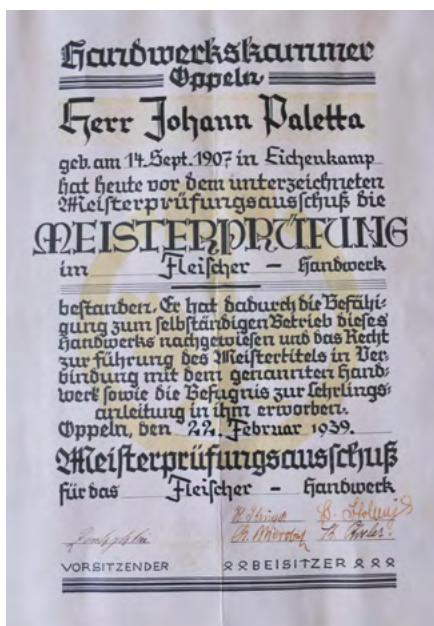 Handwerkskammer
Oppeln
Herr Johann Paletta
geb. am 14. Sept. 1907 in Eichenkamp
hat heute vor dem unterzeichneten
Meisterprüfungsausschuß die
MEISTERPRÜFUNG
im Fleischer - Handwerk
bestanden. Er hat dadurch die Befähi-
gung zum selbständigen Betrieb dieses
Handwerks nachgewiesen und das Recht
zur Führung des Meistertitels in Ver-
bindung mit dem genannten Hand-
werk sowie die Befugnis zur Lehrlings-
anleitung in ihm erworben.
Oppeln, den 22. Februar 1939.
Meisterprüfungsausschuß
für das Fleischer - Handwerk
VORSITZENDER BEISITZER